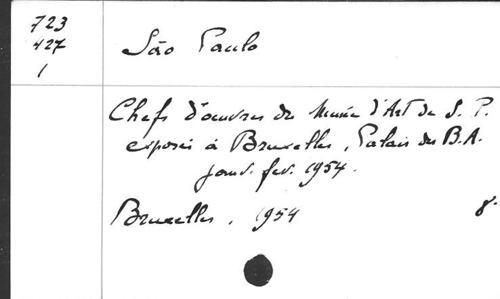 723
427
1
São Paulo
Chefs d'œuvres du Musée d'Art de S. P.
exposés à Bruxelles, Palais des B.A.
janv. fev. 1954.
Bruxelles, 1954 8°